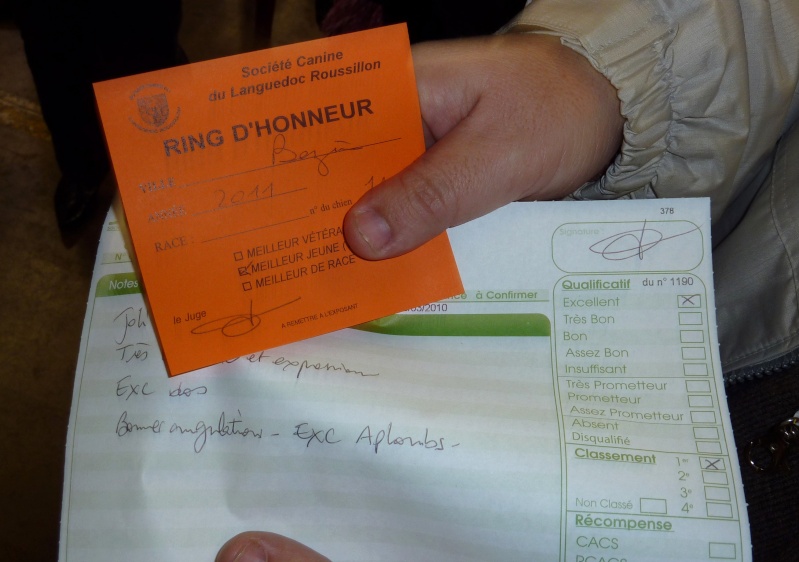 Société Canine
du Languedoc Roussillon
RING D'HONNEUR
VILLE
ANNÉE 2011
RACE n° du chien
MEILLEUR VÉTÉRA
MEILLEUR JEUNE (
MEILLEUR DE RACE
le Juge
A REMETTRE A L'EXPOSANT
378
Signature
N°
Notes
à Confirmer
/2010
Qualificatif du n° 1190
Excellent
Très Bon
Bon
Assez Bon
Insuffisant
Très Prometteur
Prometteur
Assez Prometteur
Absent
Disqualifié
Classement 1er
2e
3e
Non Classé 4e
Récompense
CACS
RCACS
Très et expression
Exc dos
Bonnes angulations - EXC Aplombs -